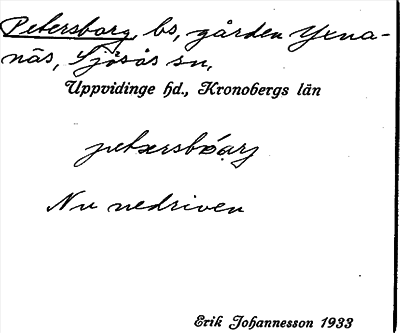 Petersborg, bs, gården Yxna-
näs, Sjösås sn,
Uppvidinge hd., Kronobergs län
Nu nedriven
Erik Johannesson 1933